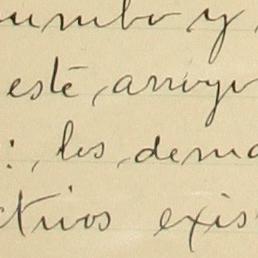 rumbo y
este arroyo
: , los dema
ctivos exis